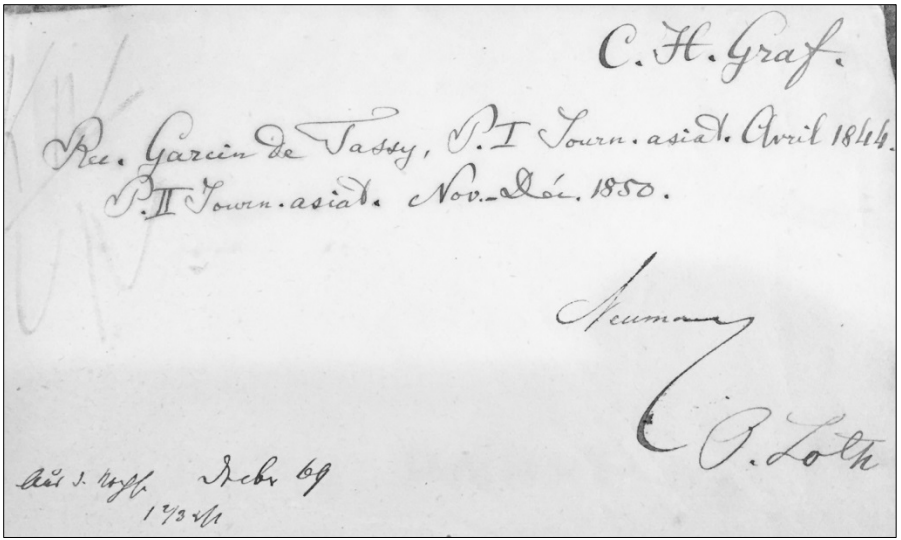 C. H. Graf.
Rec. Garcin de Tassy, P. I Journ. asiat. Avril 1844.
P. II Journ. asiat. Nov.-Déc. 1850.
Neumann
O. Loth
Aus d.
Decbr 69
1 2/3